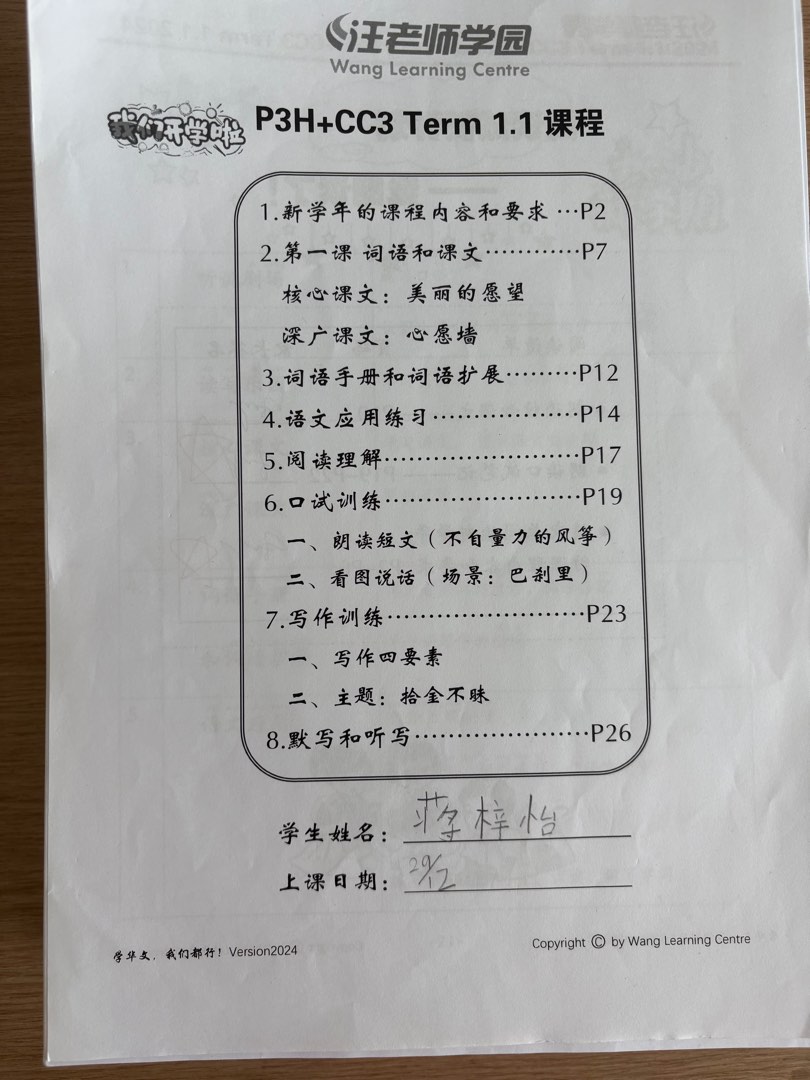 汪老师学园
Wang Learning Centre
我们开学啦
P3H+CC3 Term 1.1 课程
1.新学年的课程内容和要求 …P2
2.第一课 词语和课文…………P7
核心课文：美丽的愿望
深广课文：心愿墙
3.词语手册和词语扩展………P12
4.语文应用练习………………P14
5.阅读理解……………………P17
6.口试训练……………………P19
一、朗读短文（不自量力的风筝）
二、看图说话（场景：巴刹里）
7.写作训练……………………P23
一、写作四要素
二、主题：拾金不昧
8.默写和听写…………………P26
学生姓名：蒋梓怡
上课日期：29/12
学华文，我们都行！Version2024
Copyright © by Wang Learning Centre